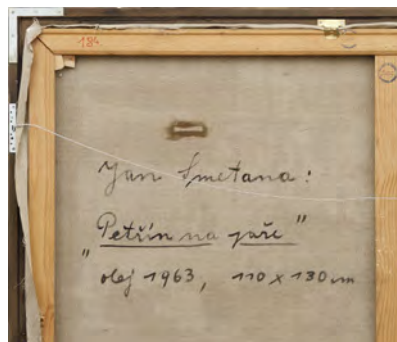 184
Jan Smetana:
„Petřín na jaře”
olej 1963, 110 x 130 cm